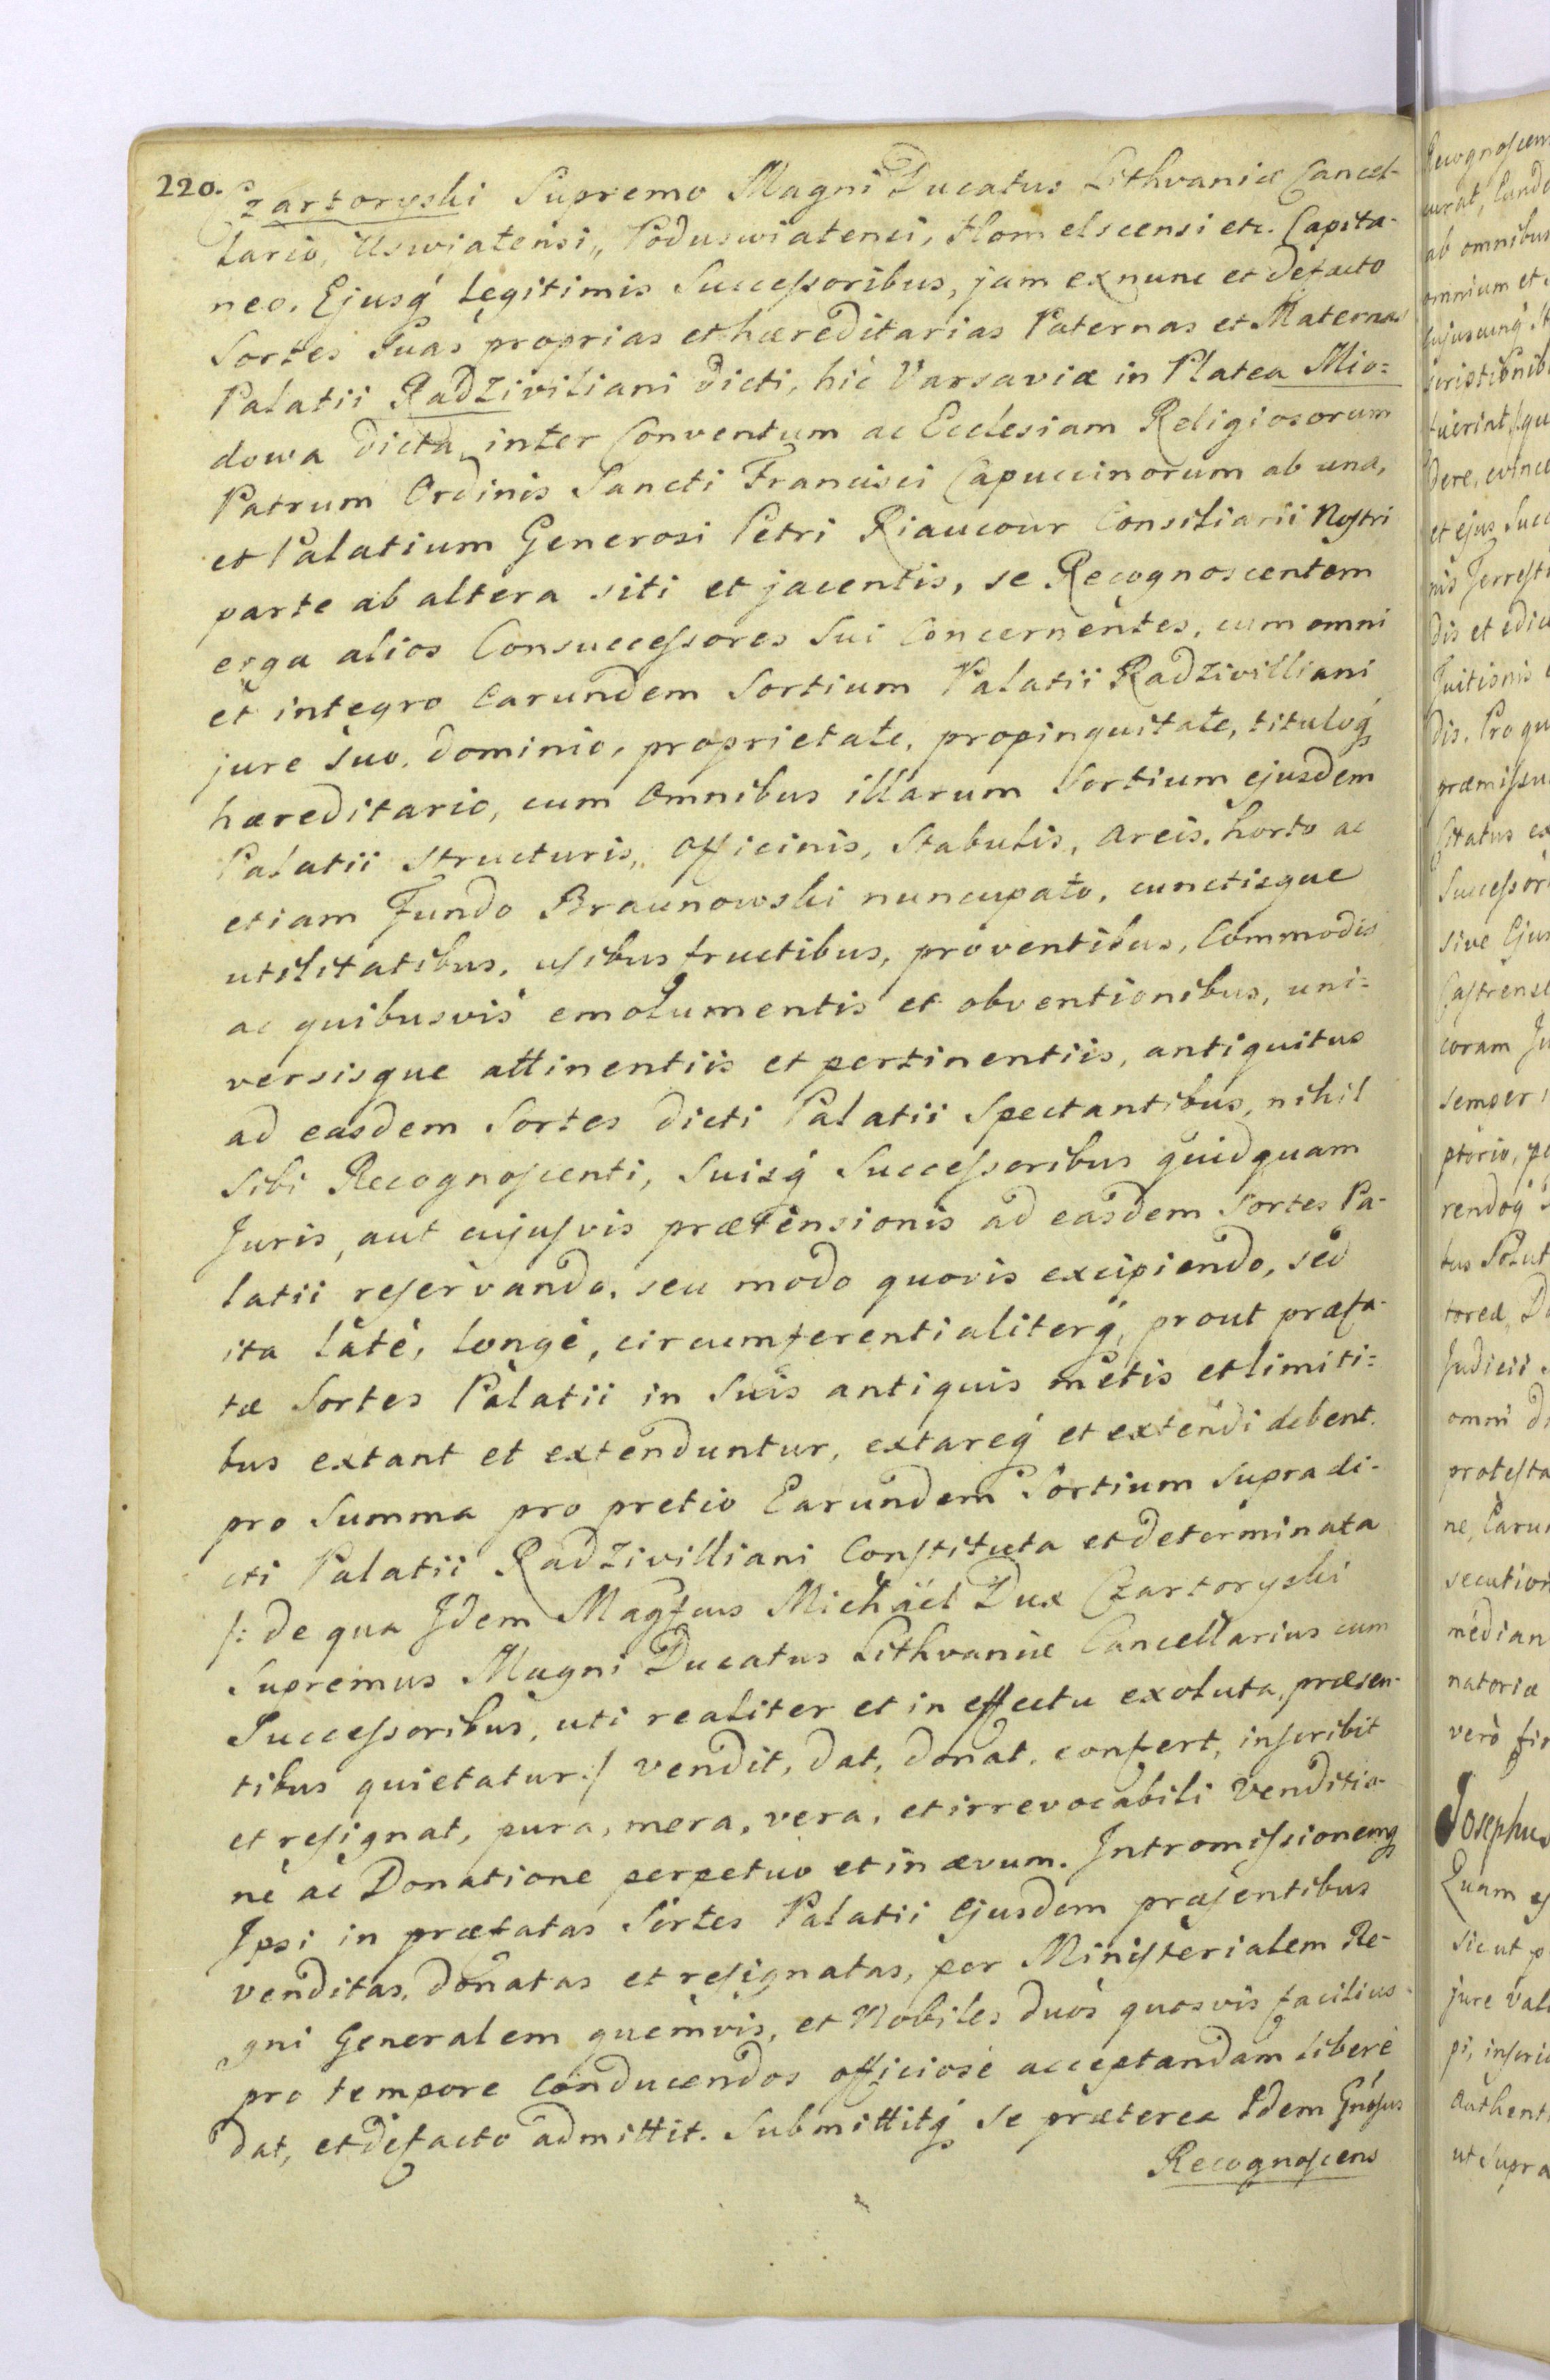 220.
Czartoryski Supremo Magni Ducatus Lithvaniæ Cancel-
lario, Uswiatensi, Poduswiatensi, Homelscensi etc. Capita-
neo. Ejusq́ Legitimis Successoribus, jam exnunc et defacto
Sortes Suas proprias et hæreditarias Paternas et Maternas
Palatii Radziviliani dicti, hic Varsaviæ in Platea Mio=
dowa dicta, inter Conventum ac Ecclesiam Religiosorum
Patrum Ordinis Sancti Francisci Capuccinorum ab una,
et Palatium Generosi Petri Riaucour Consiliarii Nostri
parte ab altera siti et jacentis, se Recognoscentem
erga alios Consuccessores Sui Concernentes, cum omni
et integro Earundem Sortium Palatii Radzivilliani
jure suo, dominio, proprietate, propinquitate, tituloq́
hæreditario, cum omnibus illarum Sortium ejusdem
Palatii Structuris, Officinis, Stabulis, Areis, horto ac
etiam Fundo Braunowski nuncupato, cunctisque
utilitatibus, usibus fructibus, proventibus, Commodis
ac quibusvis emolumentis et obventionibus, uni=
versisque attinentiis et pertinentiis, antiquitus
ad easdem Sortes dicti Palatii Spectantibus, nihil
Sibi Recognoscenti, Suisq́ Successoribus quidquam
Juris, aut cujusvis prætensionis ad easdem Sortes Pa-
latii reservando, seu modo quovis excipiendo, sed
ita latè, longè, circumferentialiterq́, prout præfa-
tæ Sortes Palatii in Suis antiquis metis et limiti=
bus extant et extenduntur, extareq́ et extendi debent.
pro Summa pro pretio Earundem Sortium Supradi-
cti Palatii Radzivilliani Constituta et determinata
/: de qua Idem Magfcus Michäel Dux Czartoryski
Supremus Magni Ducatus Lithvaniæ Cancellarius cum
Successoribus, uti realiter et in effectu exoluta, præsen-
tibus quietatur :/ vendit, dat, donat, confert, inscribit
et resignat, pura, mera, vera, et irrevocabili Venditio-
ne ac Donatione perpetuo et in ævum. Intromissionemq́
Ipsi in præfatas Sortes Palatii Ejusdem præsentibus
venditas, donatas et resignatas, per Ministerialem Re-
gni Generalem quemvis, et Nobiles duos quosvis facilius
pro tempore Conducendos officiosè acceptandam liberè
dat, et defacto admittit. Submittitq́ Se præterea Idem Gnosus
Recognoscens